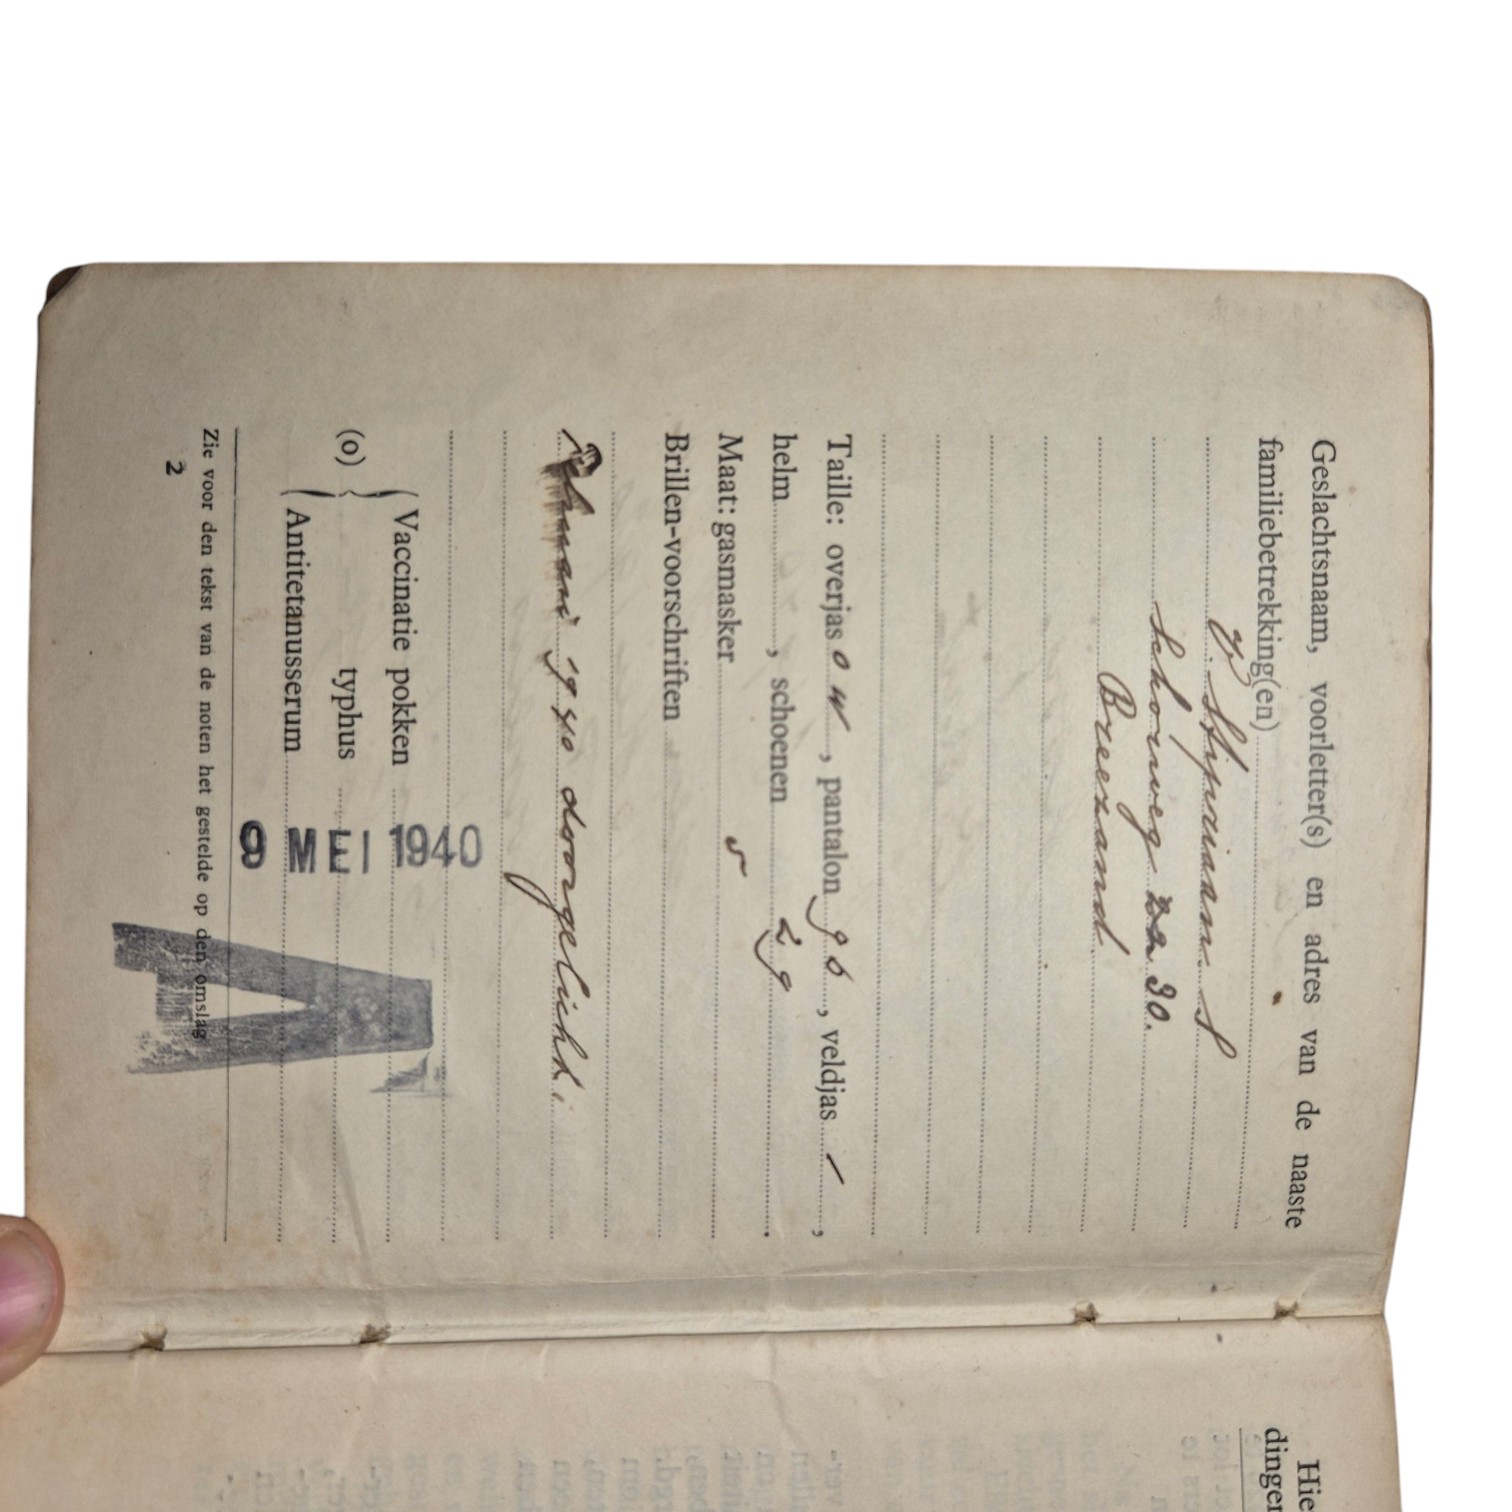 Geslachtsnaam, voorletter(s) en adres van de naaste
familiebetrekking(en)
Schorweg 30.
Breezand
Taille: overjas o w, pantalon g 6, veldjas /,
helm, schoenen 29.
Maat: gasmasker v
Brillen-voorschriften
1940 doorgelicht.
(o) { Vaccinatie pokken
typhus
Antitetanusserum
9 MEI 1940
A
Zie voor den tekst van de noten het gestelde op den omslag
2
Hie
dingen